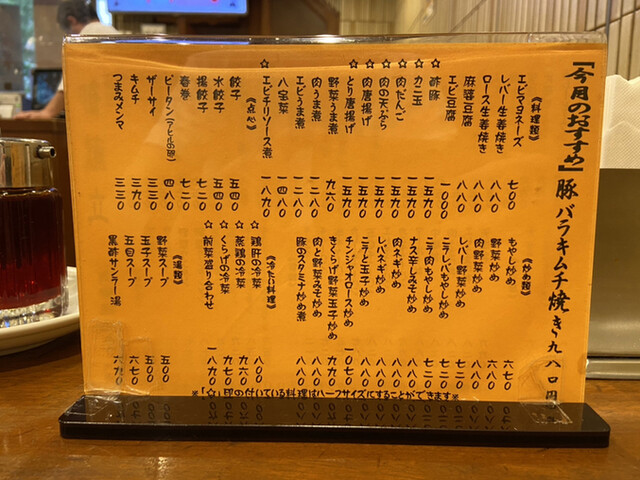 「今月のおすすめ」豚バラキムチ焼き 九八〇円
《料理類》
エビマヨネーズ 七〇〇
レバー生姜焼き 八八〇
ロース生姜焼き 八八〇
麻婆豆腐 八八〇
エビ豆腐 一〇〇〇
☆酢豚 一五九〇
☆カニ玉 一五九〇
☆肉だんご 一五九〇
☆肉の天ぷら 一五九〇
☆肉唐揚げ 一五九〇
☆とり唐揚げ 一五九〇
野菜うま煮 九六〇
肉うま煮 一二八〇
エビうま煮 一二八〇
八宝菜 一四八〇
☆エビチリソース煮 一八九〇
《点心》
餃子 五四〇
水餃子 五四〇
揚餃子 七二〇
春巻 七二〇
ピータン(アヒルの卵) 四八〇
ザーサイ 三三〇
キムチ 三九〇
つまみメンマ 三三〇
《炒め類》
もやし炒め 六七〇
野菜炒め 六八〇
肉野菜炒め 八八〇
レバー野菜炒め 八八〇
ニラレバもやし炒め 七二〇
ニラ肉もやし炒め 七二〇
ナス辛しみそ炒め 八八〇
肉ネギ炒め 八八〇
レバネギ炒め 八八〇
ニラと玉子炒め 八八〇
チンジャオロース炒め 一〇七〇
きくらげ野菜玉子炒め 九九〇
肉と野菜みそ炒め 八八〇
豚のスタミナ炒め煮 八八〇
《冷たい料理》
鶏肝の冷菜 八〇〇
☆蒸鶏の冷菜 九六〇
☆くらげの冷菜 九七〇
☆前菜盛り合わせ 一八九〇
《湯類》
野菜スープ 五〇〇
玉子スープ 五〇〇
五目スープ 六七〇
黒酢サンラー湯 六九〇
※「☆」印の付いている料理はハーフサイズにすることができます※